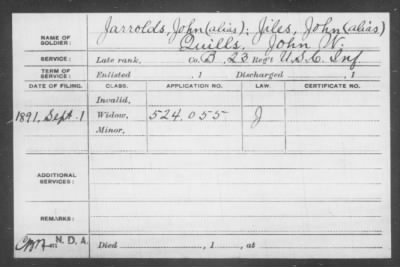 NAME OF SOLDIER: Jarrolds, John (alias); Jiles, John (alias)
Quills, John N.
SERVICE: Late rank, Co. B, 23 Reg't U.S.C. Inf.
TERM OF SERVICE: Enlisted , 1 Discharged , 1
DATE OF FILING. CLASS. APPLICATION NO. LAW. CERTIFICATE NO.
Invalid,
1891, Sept. 1 Widow, 524.055 J
Minor,
ADDITIONAL SERVICES:
REMARKS:
N.D.A. Died , 1 , at